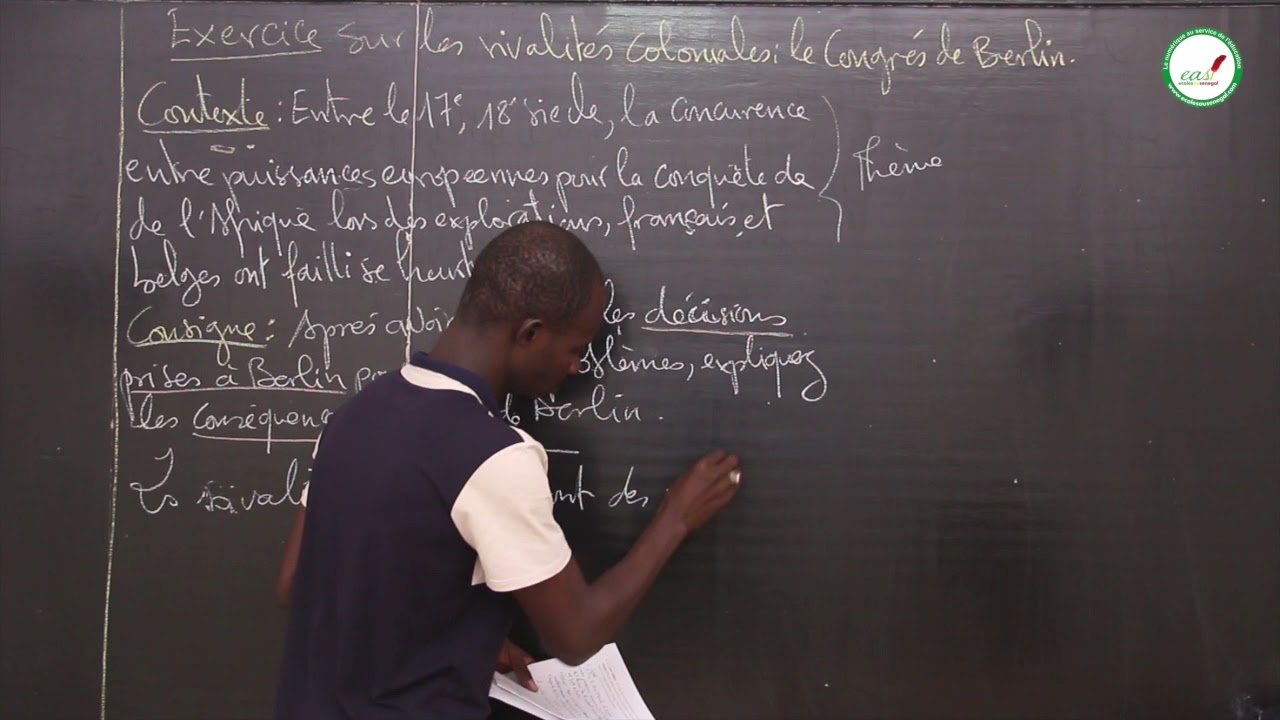 Exercice sur les rivalités coloniales: le Congrés de Berlin.
Contexte: Entre le 17e, 18e siecle, la concurence
entre puissances européennes pour la conquète de
Thème
de l'Afrique lors des explorations, français, et
belges ont failli se heurt
Consigne: Aprés avoir les décisions
prises à Berlin expliquez
les conséquenc Berlin.
des
Le numérique au service de l'éducation
easi
ecoleausenegal.com
www.ecoleausenegal.com